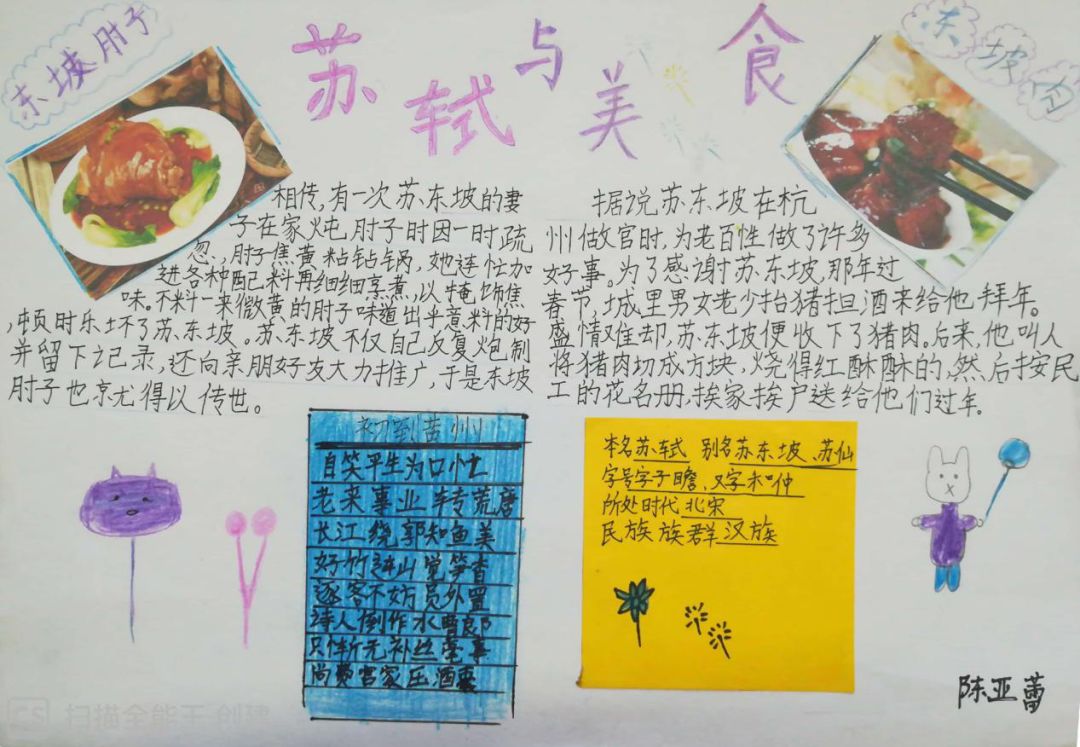 苏轼与美食
东坡肘子
东坡肉
相传,有一次苏东坡的妻
子在家炖肘子时因一时疏
忽,肘子焦黄粘钻锅,她连忙加
进各种配料再细细烹煮,以掩饰焦
味。不料一来微黄的肘子味道出乎意料的好
,顿时乐坏了苏东坡。苏东坡不仅自己反复炮制
并留下记录,还向亲朋好友大力推广,于是东坡
肘子也就得以传世。
据说苏东坡在杭
州做官时,为老百性做了许多
好事。为了感谢苏东坡,那年过
春节,城里男女老少抬猪担酒来给他拜年。
盛情难却,苏东坡便收下了猪肉。后来,他叫人
将猪肉切成方块,烧得红酥酥的,然后按民
工的花名册,挨家挨户送给他们过年。
初到黄州
自笑平生为口忙
老来事业转荒唐
长江绕郭知鱼美
好竹连山觉笋香
逐客不妨员外置
诗人例作水曹郎
只惭无补丝毫事
尚费官家压酒囊
本名苏轼 别名苏东坡、苏仙
字号字子瞻、又字和仲
所处时代北宋
民族族群汉族
陈亚蕾
CS 扫描全能王 创建